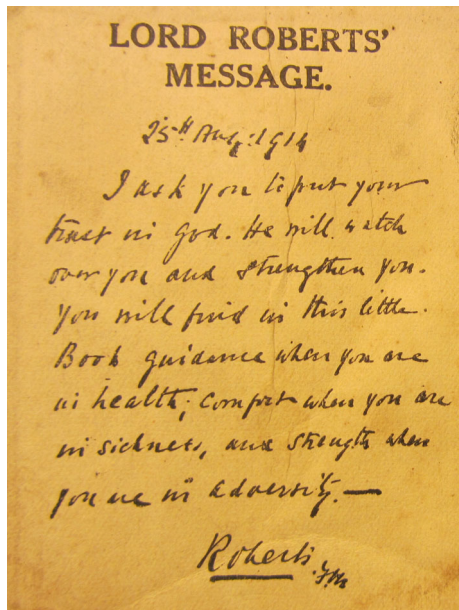 LORD ROBERTS'
MESSAGE.
25th Aug. 1914
I ask you to put your
trust in God. He will watch
over you and strengthen you.
You will find in this little
Book guidance when you are
in health, comfort when you are
in sickness, and strength when
you are in adversity.—
Roberts. F.M.